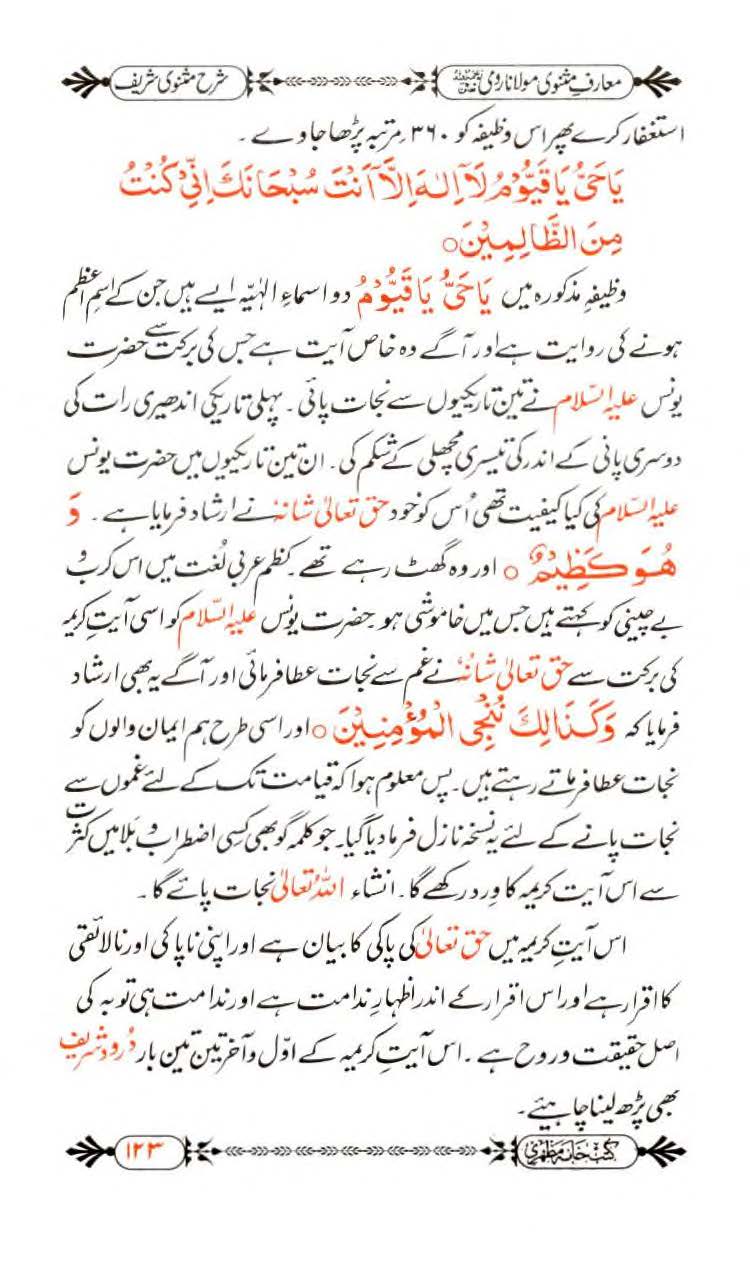 معارفِ مثنوی مولانا رومی رحمۃ اللہ علیہ
شرح مثنوی شریف
استغفار کرے پھر اس وظیفہ کو ۳۶۰ مرتبہ پڑھا جاوے ۔
يَاحَيُّ يَاقَيُّوْمُ لَآ اِلٰهَ اِلَّآ اَنْتَ سُبْحَانَكَ اِنِّيْ كُنْتُ
مِنَ الظَّالِمِيْنَ○
وظیفہ مذکورہ میں يَاحَيُّ يَاقَيُّوْمُ دو اسماءِ الٰہیّہ ایسے ہیں جن کے اسمِ اعظم
ہونے کی روایت ہے اور آگے وہ خاص آیت ہے جس کی برکت سے حضرت
یونس علیہ السّلام نے تین تاریکیوں سے نجات پائی ۔ پہلی تاریکی اندھیری رات کی
دوسری پانی کے اندر کی تیسری مچھلی کے شکم کی ۔ ان تین تاریکیوں میں حضرت یونس
علیہ السّلام کی کیا کیفیت تھی اُس کو خود حق تعالیٰ شانہٗ نے ارشاد فرمایا ہے ۔ وَ
هُوَ كَظِيْمٌ ○ اور وہ گھٹ رہے تھے ۔ کظم عربی لُغت میں اس کرب و
بے چینی کو کہتے ہیں جس میں خاموشی ہو ۔ حضرت یونس علیہ السّلام کو اسی آیتِ کریمہ
کی برکت سے حق تعالیٰ شانہٗ نے غم سے نجات عطا فرمائی اور آگے یہ بھی ارشاد
فرمایا کہ وَكَذَالِكَ نُنْجِي الْمُؤْمِنِيْنَ ○ اور اسی طرح ہم ایمان والوں کو
نجات عطا فرماتے رہتے ہیں ۔ پس معلوم ہوا کہ قیامت تک کے لئے غموں سے
نجات پانے کے لئے یہ نسخہ نازل فرما دیا گیا ۔ جو کلمہ گو بھی کسی اضطراب و بلا میں کثرت
سے اس آیت کریمہ کا وِرد رکھے گا ۔ انشاء اللہُ تعالیٰ نجات پائے گا ۔
اس آیتِ کریمہ میں حق تعالیٰ کی پاکی کا بیان ہے اور اپنی ناپاکی اور نالائقی
کا اقرار ہے اور اس اقرار کے اندر اظہارِ ندامت ہے اور ندامت ہی توبہ کی
اصل حقیقت و روح ہے ۔ اس آیتِ کریمہ کے اوّل و آخر تین تین بار دُرود شریف
بھی پڑھ لینا چاہیئے ۔
کتب خانہ مظہری
۱۲۳